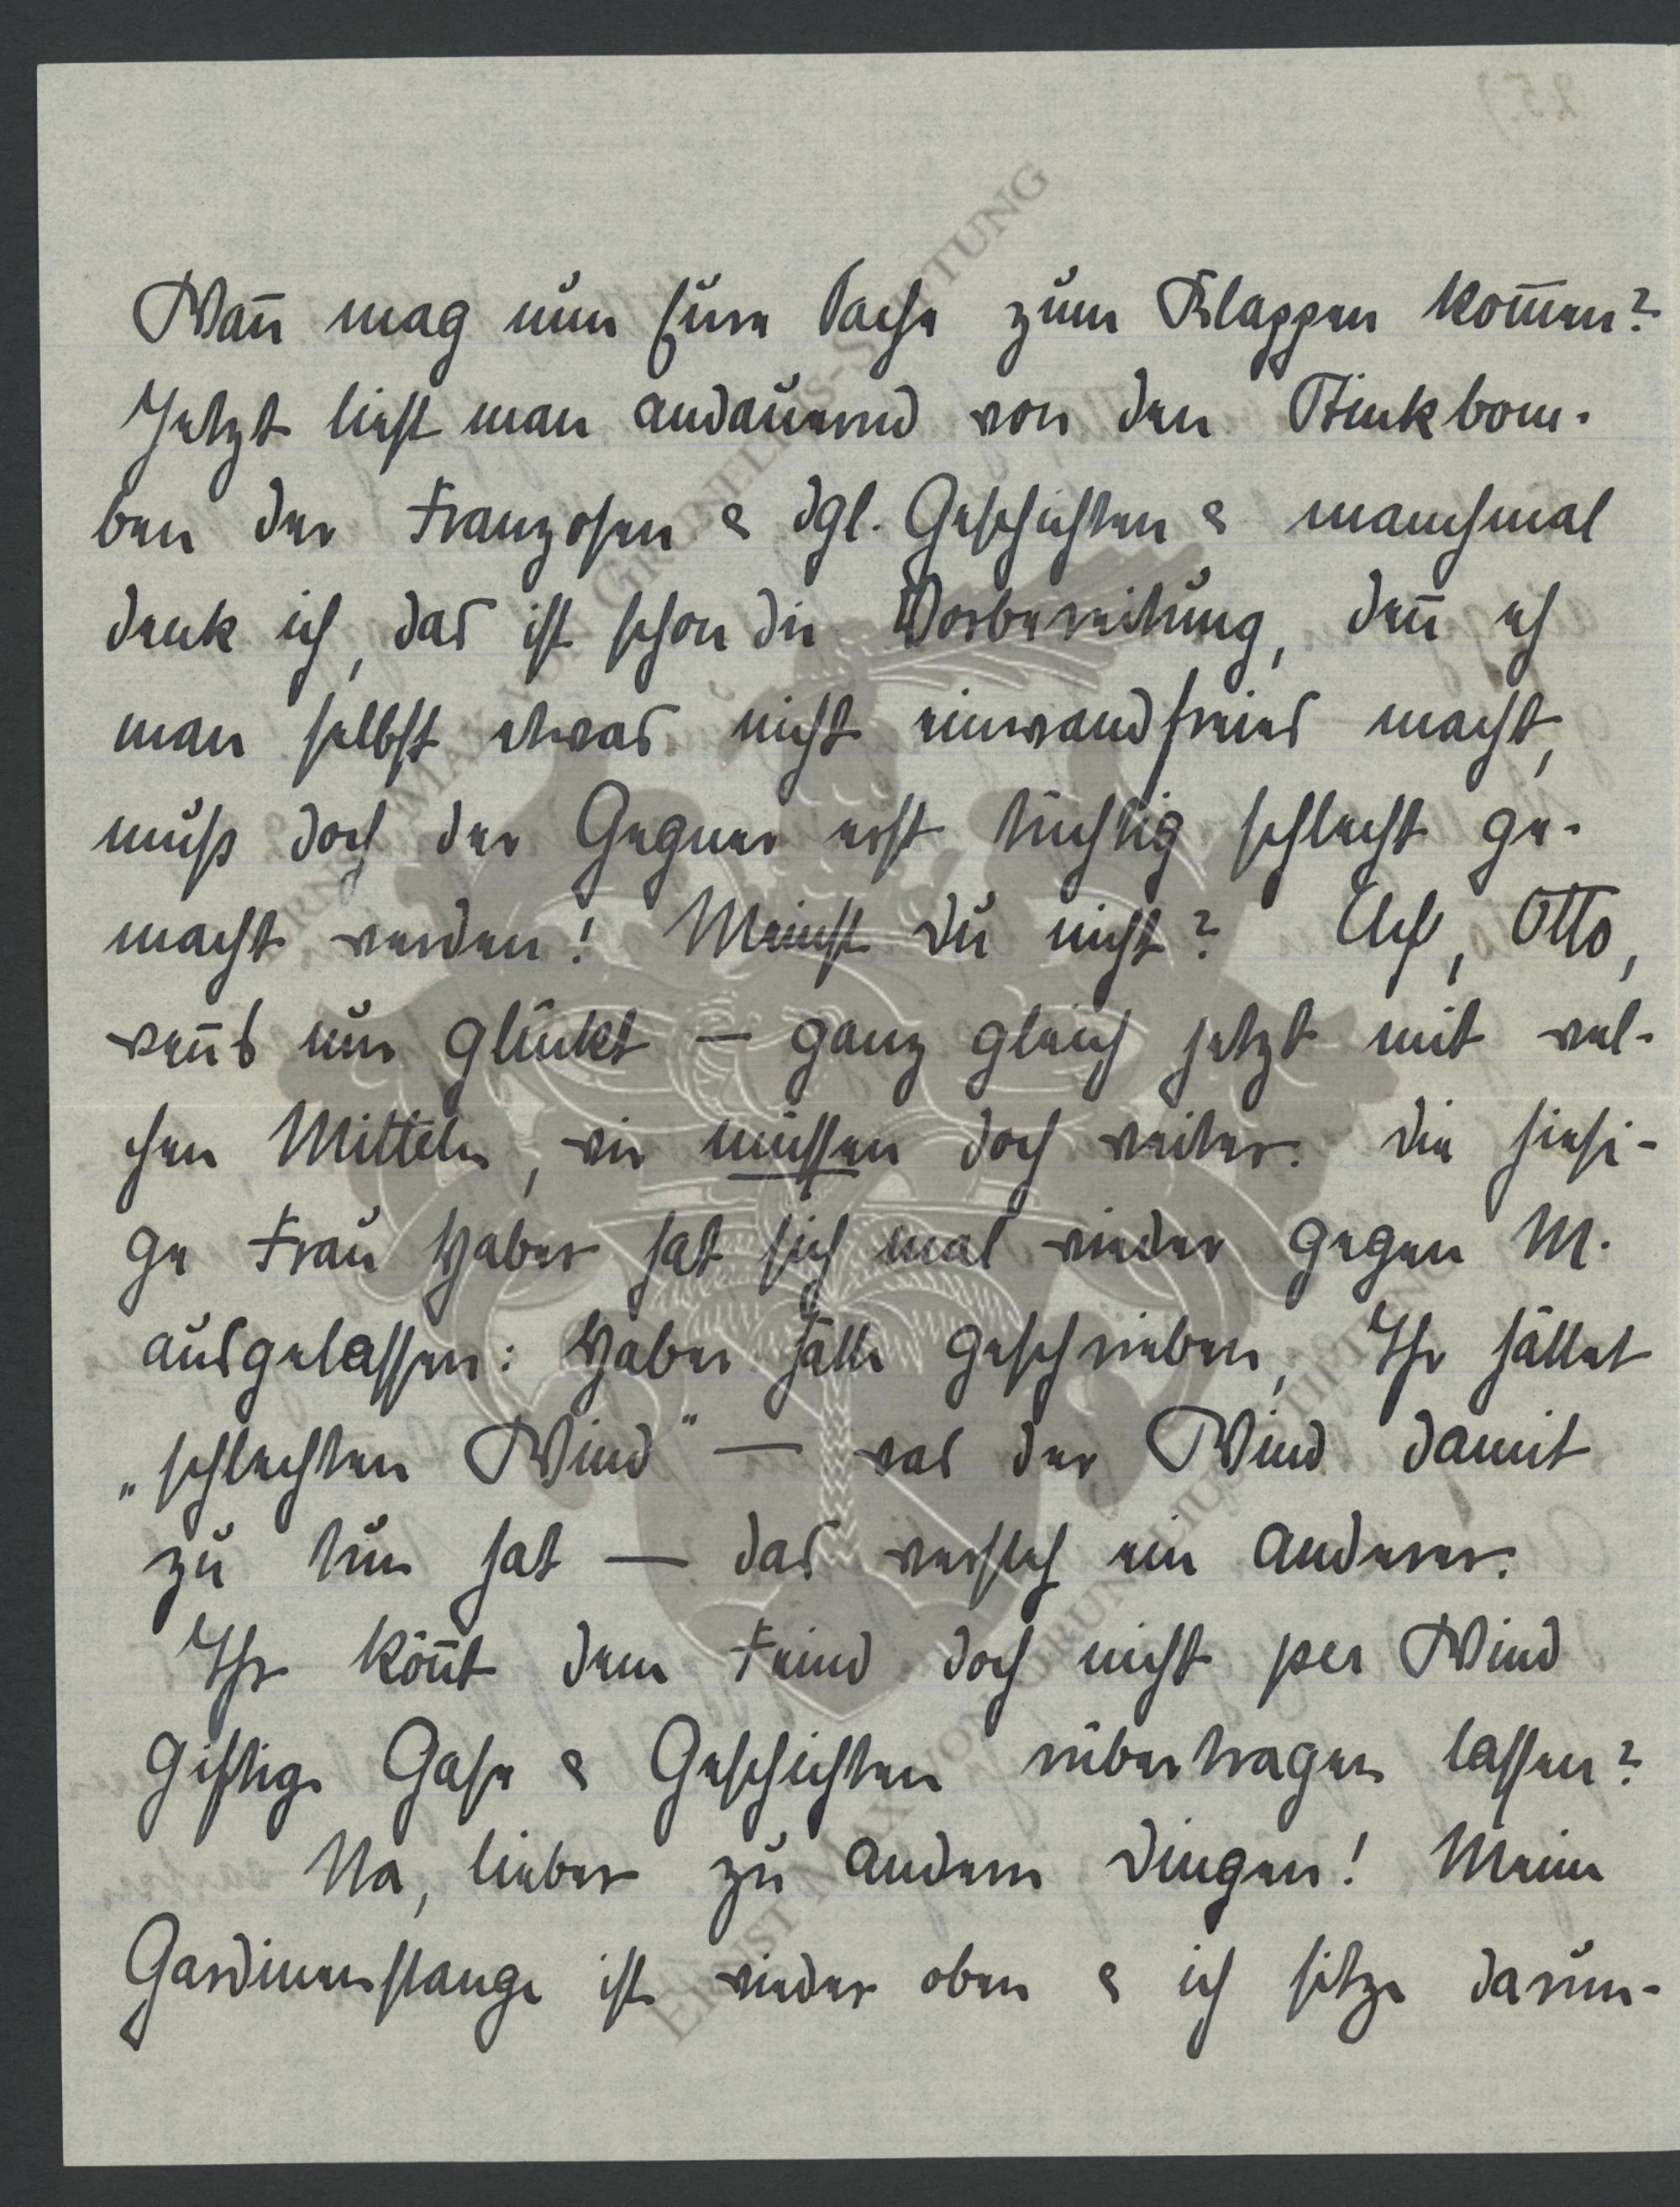 Wan̄ mag nun Eure Sache zum Klappen kom̄en?
Jetzt liest man andauernd von den Stinkbom-
ben der Franzosen & dgl. Geschichten & manchmal
denk ich, das ist schon die Vorbereitung, den̄ eh
man selbst etwas nicht einwandfreies macht,
muß doch der Gegner erst tüchtig schlecht ge-
macht werden! Meinst Du nicht? Ach, Otto,
wen̄s nur glückt – ganz gleich jetzt mit wel-
chen Mitteln, wir müssen doch weiter. Die hiesi-
ge Frau Haber hat sich mal wieder gegen M.
ausgelassen: Haber hätte geschrieben, Ihr hättet
„schlechten Wind" — was der Wind damit
zu tun hat — das versteh ein Anderer.
Ihr kön̄t dem Feind doch nicht per Wind
giftige Gase & Geschichten rübertragen lassen?
Na, lieber zu andern Dingen! Meine
Gardinenstange ist wieder oben & ich sitze darun-
ERNST MAX VON GRUNELIUS-STIFTUNG
ERNST MAX VON GRUNELIUS-STIFTUNG